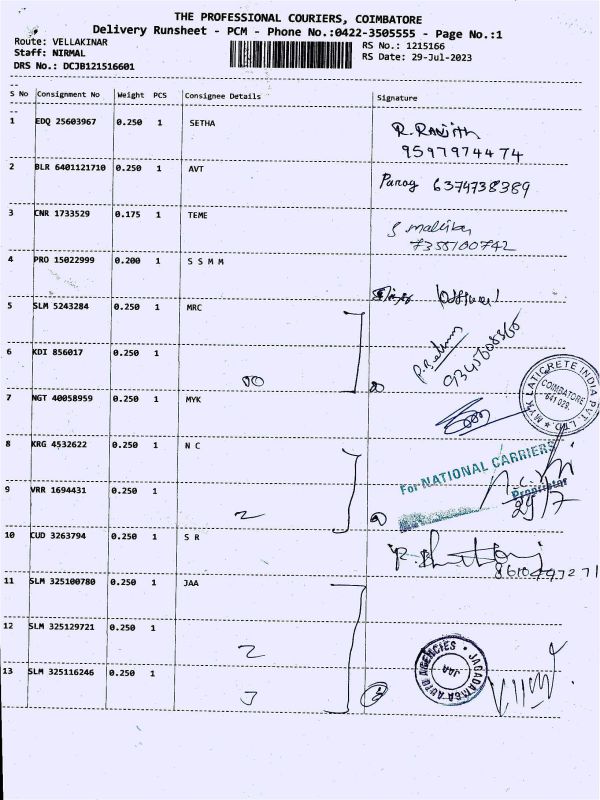 THE PROFESSIONAL COURIERS, COIMBATORE
Delivery Runsheet - PCM - Phone No.:0422-3505555 - Page No.:1
Route: VELLAKINAR
Staff: NIRMAL
DRS No.: DCJB121516601
RS No.: 1215166
RS Date: 29-Jul-2023
S No Consignment No Weight PCS Consignee Details Signature
1 EDQ 25603967 0.250 1 SETHA
R. Ranjith
9597974474
2 BLR 6401121710 0.250 1 AVT
Parag 6374738389
3 CNR 1733529 0.175 1 TEME
S mallika
7355100742
4 PRO 15022999 0.200 1 S S M M
5 SLM 5243284 0.250 1 MRC
6 KDI 856017 0.250 1
7 NGT 40058959 0.250 1 MYK
MYK LATICRETE INDIA PVT. LTD.
COIMBATORE
641 029.
8 KRG 4532622 0.250 1 N C
For NATIONAL CARRIERS
Proprietor
29/7
9 VRR 1694431 0.250 1
2
10 CUD 3263794 0.250 1 S R
11 SLM 325100780 0.250 1 JAA
12 SLM 325129721 0.250 1
2
13 SLM 325116246 0.250 1
JAGADAMBA AUTO AGENCIES
JAA